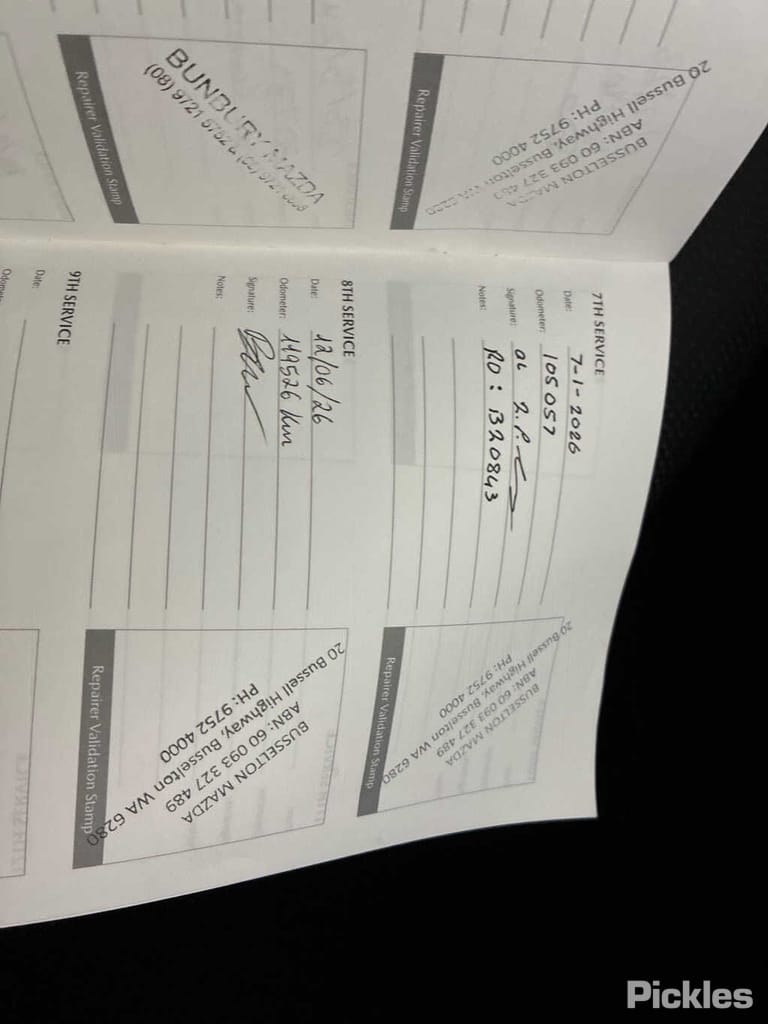 BUNBURY MAZDA
Repairer Validation Stamp
BUSSELTON MAZDA
ABN: 60 093 327 489
20 Bussell Highway, Busselton WA 6280
PH: 9752 4000
Repairer Validation Stamp
7TH SERVICE
Date: 7-1-2026
Odometer: 105057
Signature:
Notes: RO: B20843
BUSSELTON MAZDA
ABN: 60 093 327 489
20 Bussell Highway, Busselton WA 6280
PH: 9752 4000
Repairer Validation Stamp
8TH SERVICE
Date: 12/06/26
Odometer: 119526 km
Signature:
Notes:
BUSSELTON MAZDA
ABN: 60 093 327 489
20 Bussell Highway, Busselton WA 6280
PH: 9752 4000
Repairer Validation Stamp
9TH SERVICE
Date:
Pickles